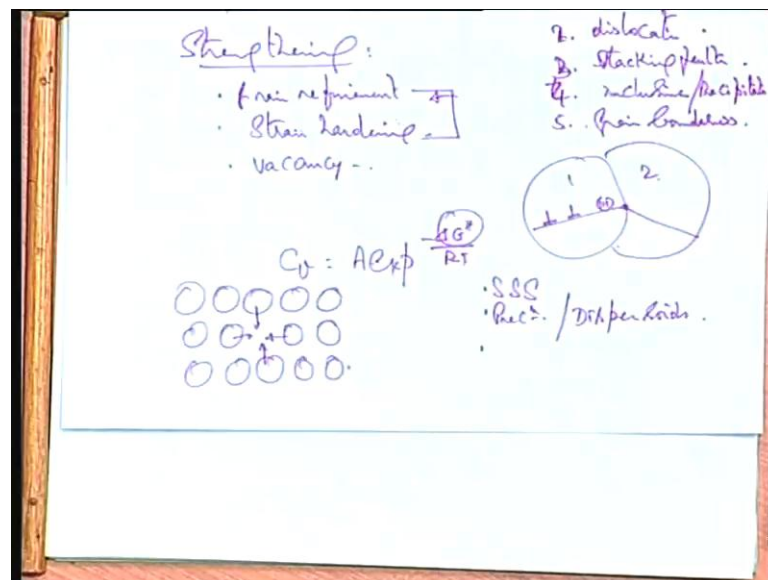 Strengthening:
· Grain refinement
· Strain hardening
· Vacancy -.
2. dislocati .
3. Stacking faults .
4. Inclusions/Precipitate
5. Grain boundaries.
1
2
Cv = A exp -ΔG*/RT
· SSS
· Prec. / Dispersoids .